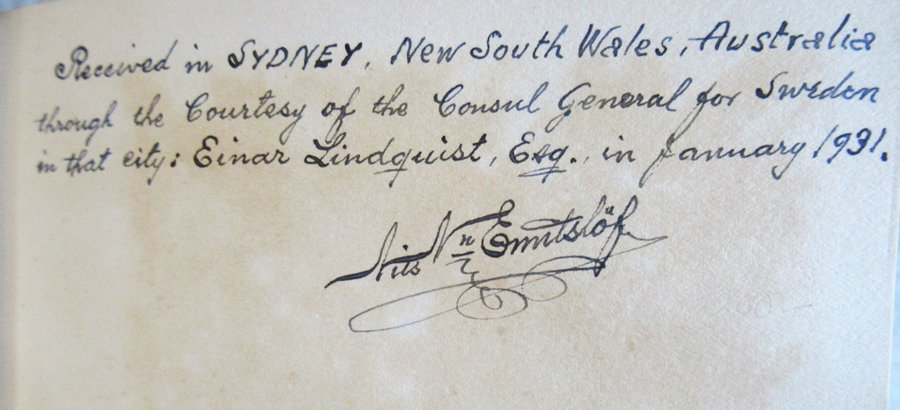 Received in SYDNEY, New South Wales, Australia
through the Courtesy of the Consul General for Sweden
in that city: Einar Lindquist, Esq., in January 1931.
Nils